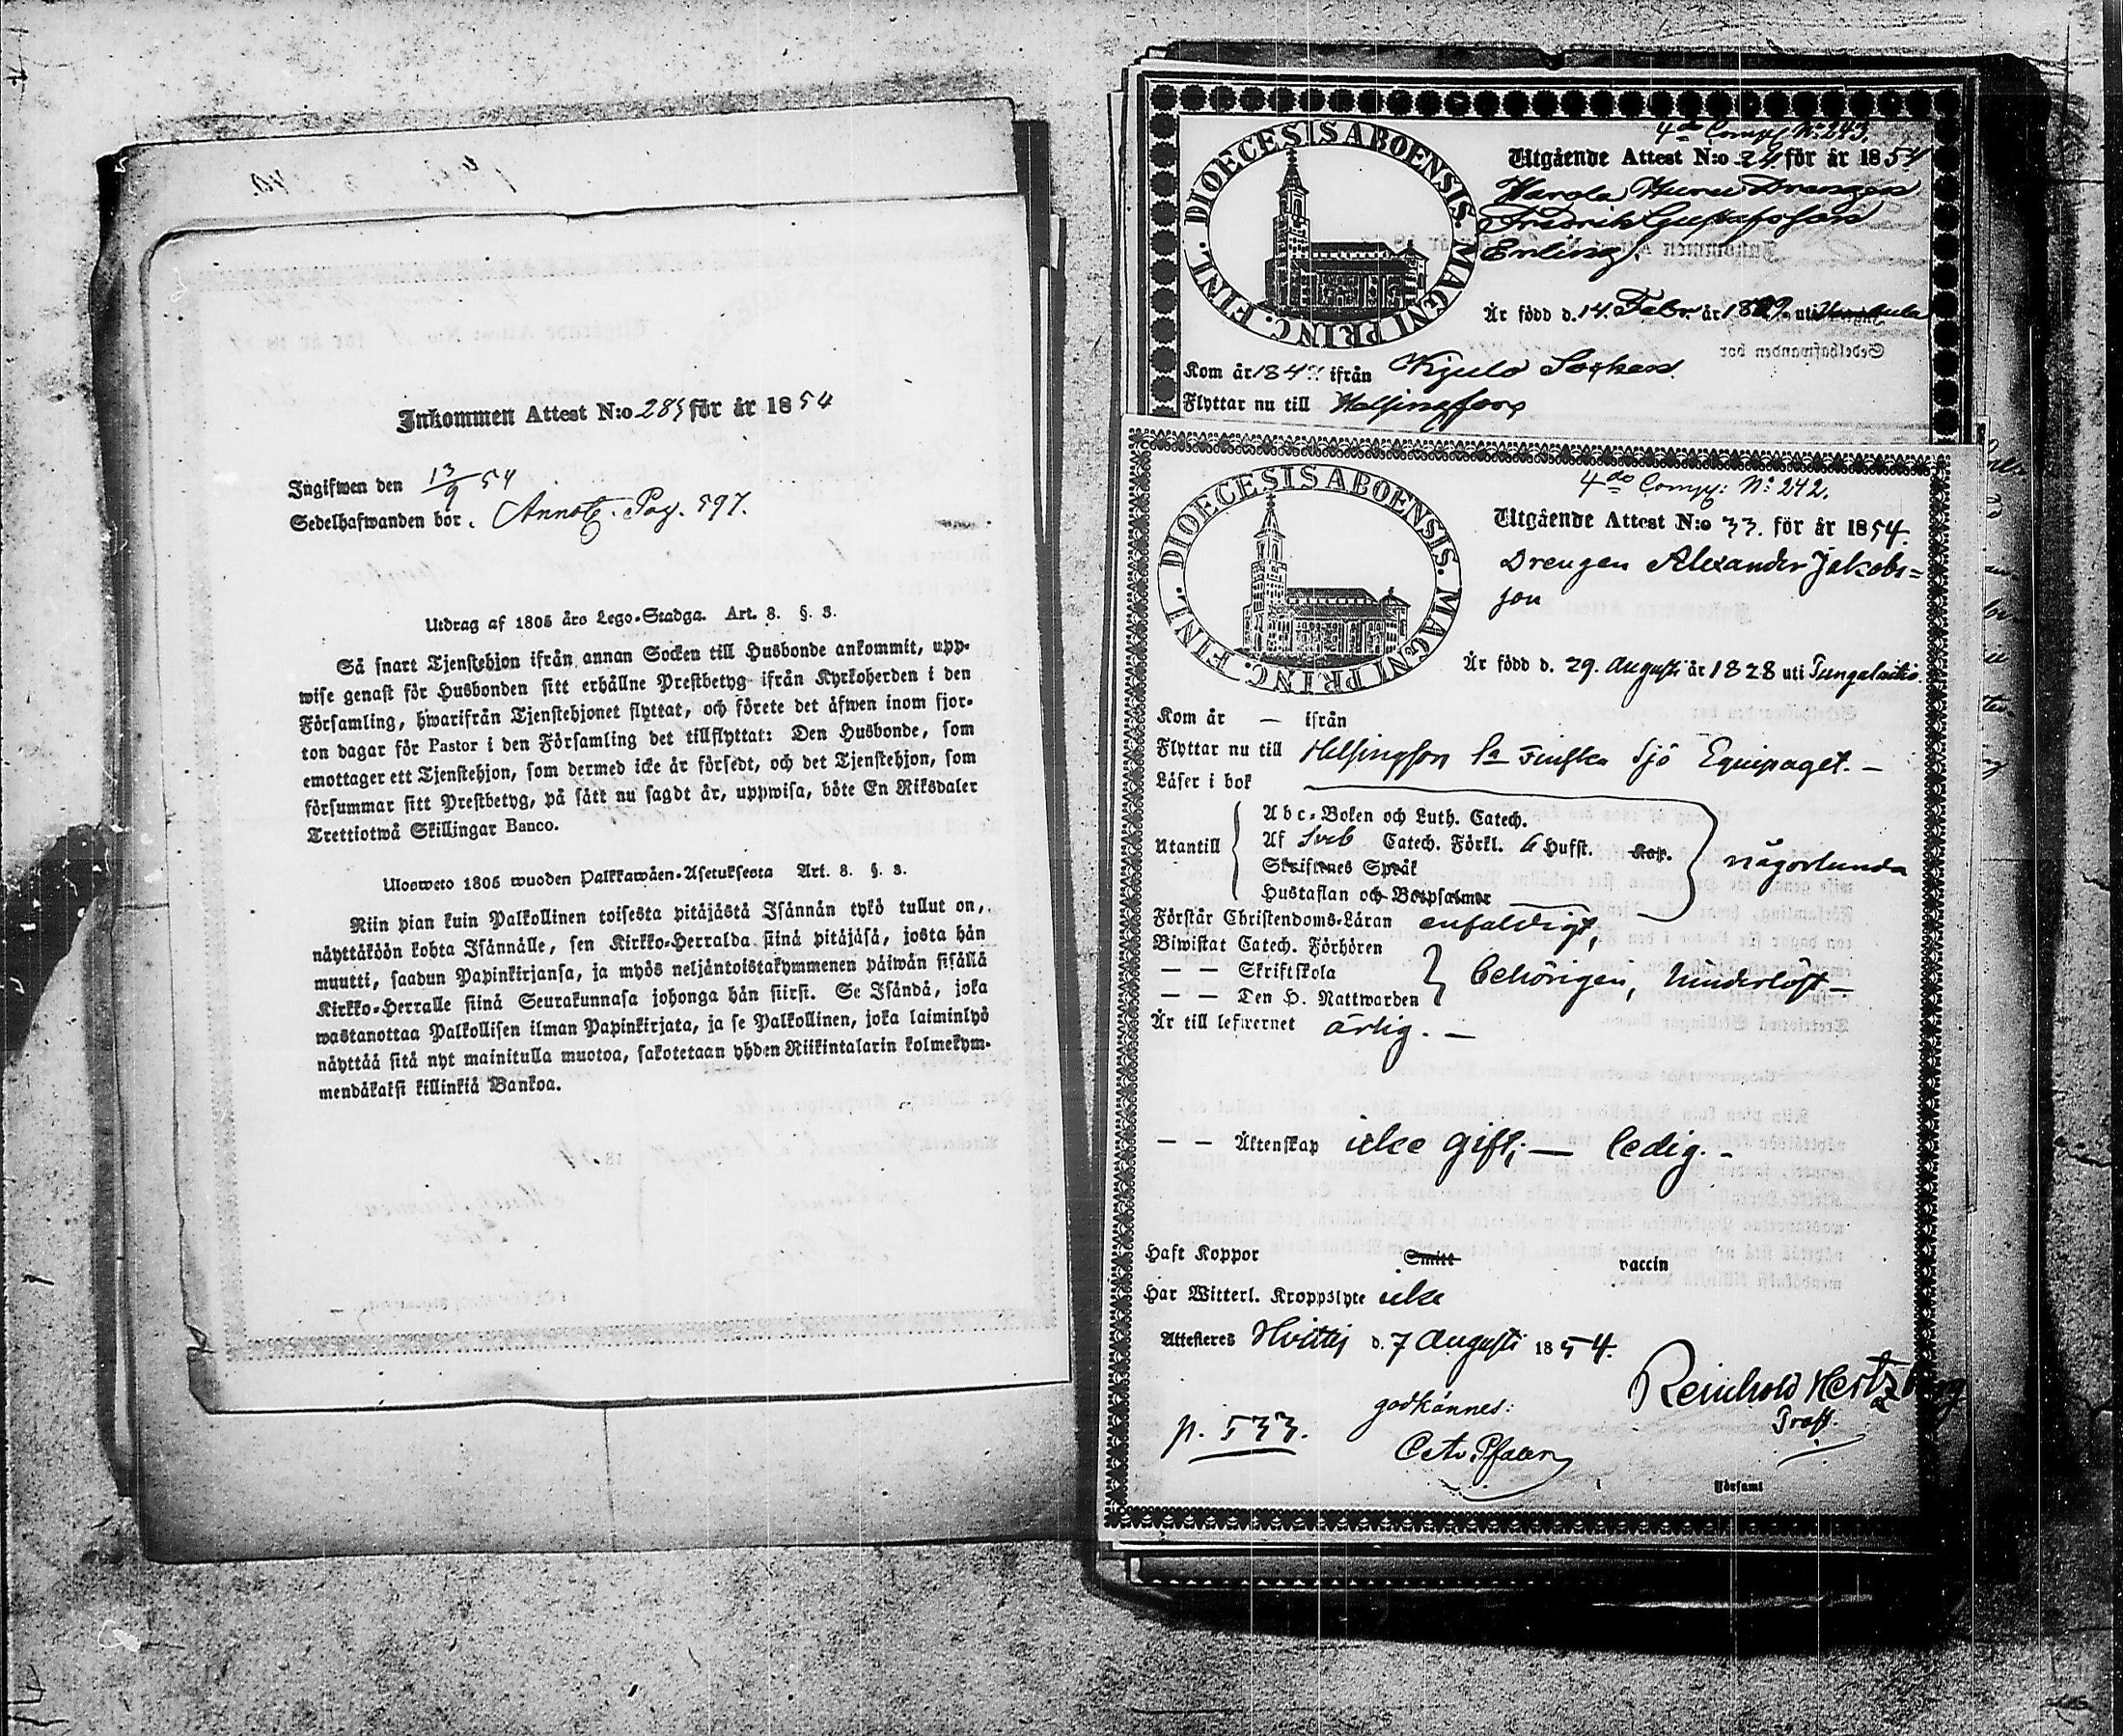 Inkommen Attest N:o 285 för år 1854
Ingifwen den 13/9 54
Sedelhafwanden bor. Annotb. Pag. 597.
Utdrag af 1805 års Lego-Stadga. Art. 8. §. 3.
Så snart Tjenstehjon ifrån annan Socken till Husbonde ankommit, upp-
wise genast för Husbonden sitt erhållne Prestbetyg ifrån Kyrkoherden i den
Församling, hwarifrån Tjenstehjonet flyttat, och förete det äfwen inom fjor-
ton dagar för Pastor i den Församling det tillflyttat: Den Husbonde, som
emottager ett Tjenstehjon, som dermed icke är försedt, och det Tjenstehjon, som
försummar sitt Prestbetyg, på sätt nu sagdt är, uppwisa, böte En Riksdaler
Trettiotwå Skillingar Banco.
Ulosweto 1805 wuoden Palkkawäen-Asetuksesta Art. 8. §. 3.
Niin pian kuin Palkollinen toisesta pitäjästä Isännän tykö tullut on,
näyttäköön kohta Isännälle, sen Kirkko-Herralda siinä pitäjäsä, josta hän
muutti, saadun Papinkirjansa, ja myös neljäntoistakymmenen päiwän sisällä
Kirkko-Herralle siinä Seurakunnasa johonga hän siirsi. Se Isändä, joka
wastanottaa Palkollisen ilman Papinkirjata, ja se Palkollinen, joka laiminlyö
näyttää sitä nyt mainitulla muotoa, sakotetaan yhden Riikintalarin kolmekym-
mendäkaksi killinkiä Bankoa.
DIOECESIS ABOENSIS. MAGNI PRINC. FINL.
4de Comp. N:o 243.
Utgående Attest N:o 24 för år 1854
Drengen
Fredrik Gustafsson
Erling.
Är född d. 14. Febr. år 18 uti
Kom år 184 ifrån Kjulo Socken
Flyttar nu till Helsingfors
DIOECESIS ABOENSIS. MAGNI PRINC. FINL.
4de Comp: N:o 242.
Utgående Attest N:o 33. för år 1854.
Drengen Alexander Jakobs=
son
Är född d. 29. Augusti år 1828 uti Pungalaitio.
Kom år — ifrån
Flyttar nu till Helsingfors 1a Finska Sjö Equipaget. —
Läser i bok
Abc-Boken och Luth. Catech.
Utantill Af Sveb Catech. Förkl. 6 Hufst. Kap. någorlunda
Skriftenes Språk
Hustaflan och Botpsalmer
Förstår Christendoms-Läran enfaldigt,
Biwistat Catech. Förhören
— — Skriftskola behörigen, hinderlöst —
— — Den H. Nattwarden
Är till lefwernet ärlig. —
— — Äktenskap icke gift; — ledig. -
Haft Koppor Smitt vaccin
Har Witterl. Kroppslyte icke
Attesteres Hvittis d. 7 Augusti 1854.
Reinhold Hertzberg
Prost.
godkännes:
p. 533.
Församl